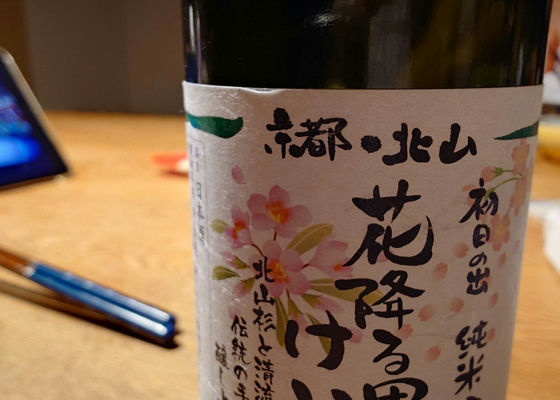 京都・北山
初日の出 純米
花降る里
けい
北山杉と清流
伝統の手
醸し
日本酒